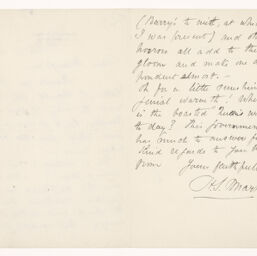 (Barry's to wit, at whi
I was present) and oth
horrors all add to the
gloom and make me de
pondent almost. —
Oh for a little sunshin
genial warmth! Whe
is the boasted Queen's we
to day? This government
has much to answer fo
Kind regards to
from Yours faithfull
H. S. Mar